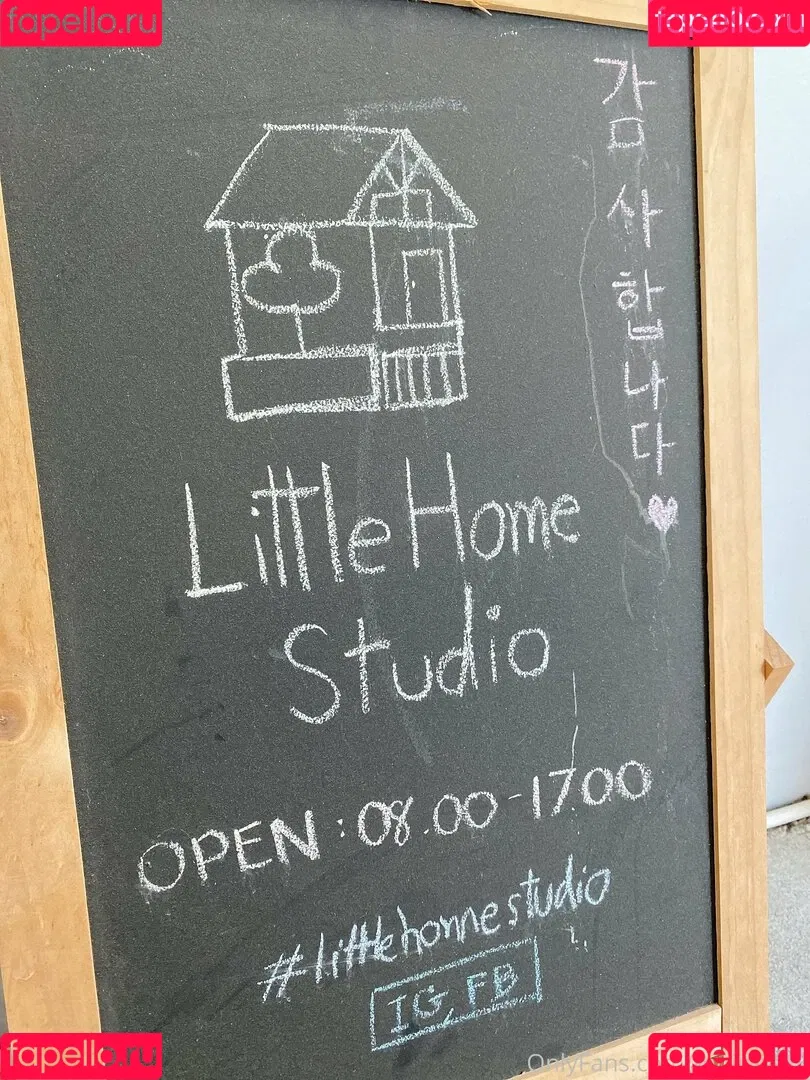 fapello.ru
fapello.ru
감사합니다
Little Home
Studio
OPEN : 08.00 - 17.00
#littlehomestudio
IG, FB
fapello.ru
OnlyFans.c
fapello.ru